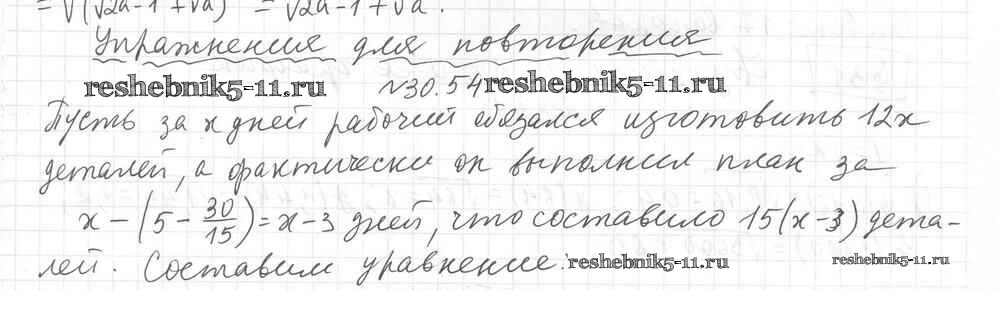 = √(√2a-1 + √a)² = √2a-1 + √a.
Упражнения для повторения
reshebnik5-11.ru №30.54 reshebnik5-11.ru
Пусть за x дней рабочий обязался изготовить 12x
деталей, а фактически он выполнил план за
x - (5 - 30/15) = x - 3 дней, что составило 15(x-3) дета-
лей. Составим уравнение: reshebnik5-11.ru reshebnik5-11.ru